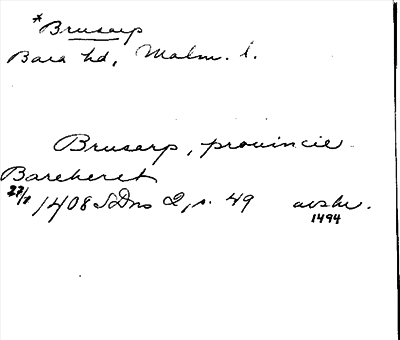 *Bruserp
Bara hd, Malm. l.
Bruserp, prouincie
Bareheret
27/7 1408 SDns 2, s. 49 avskr.
1494